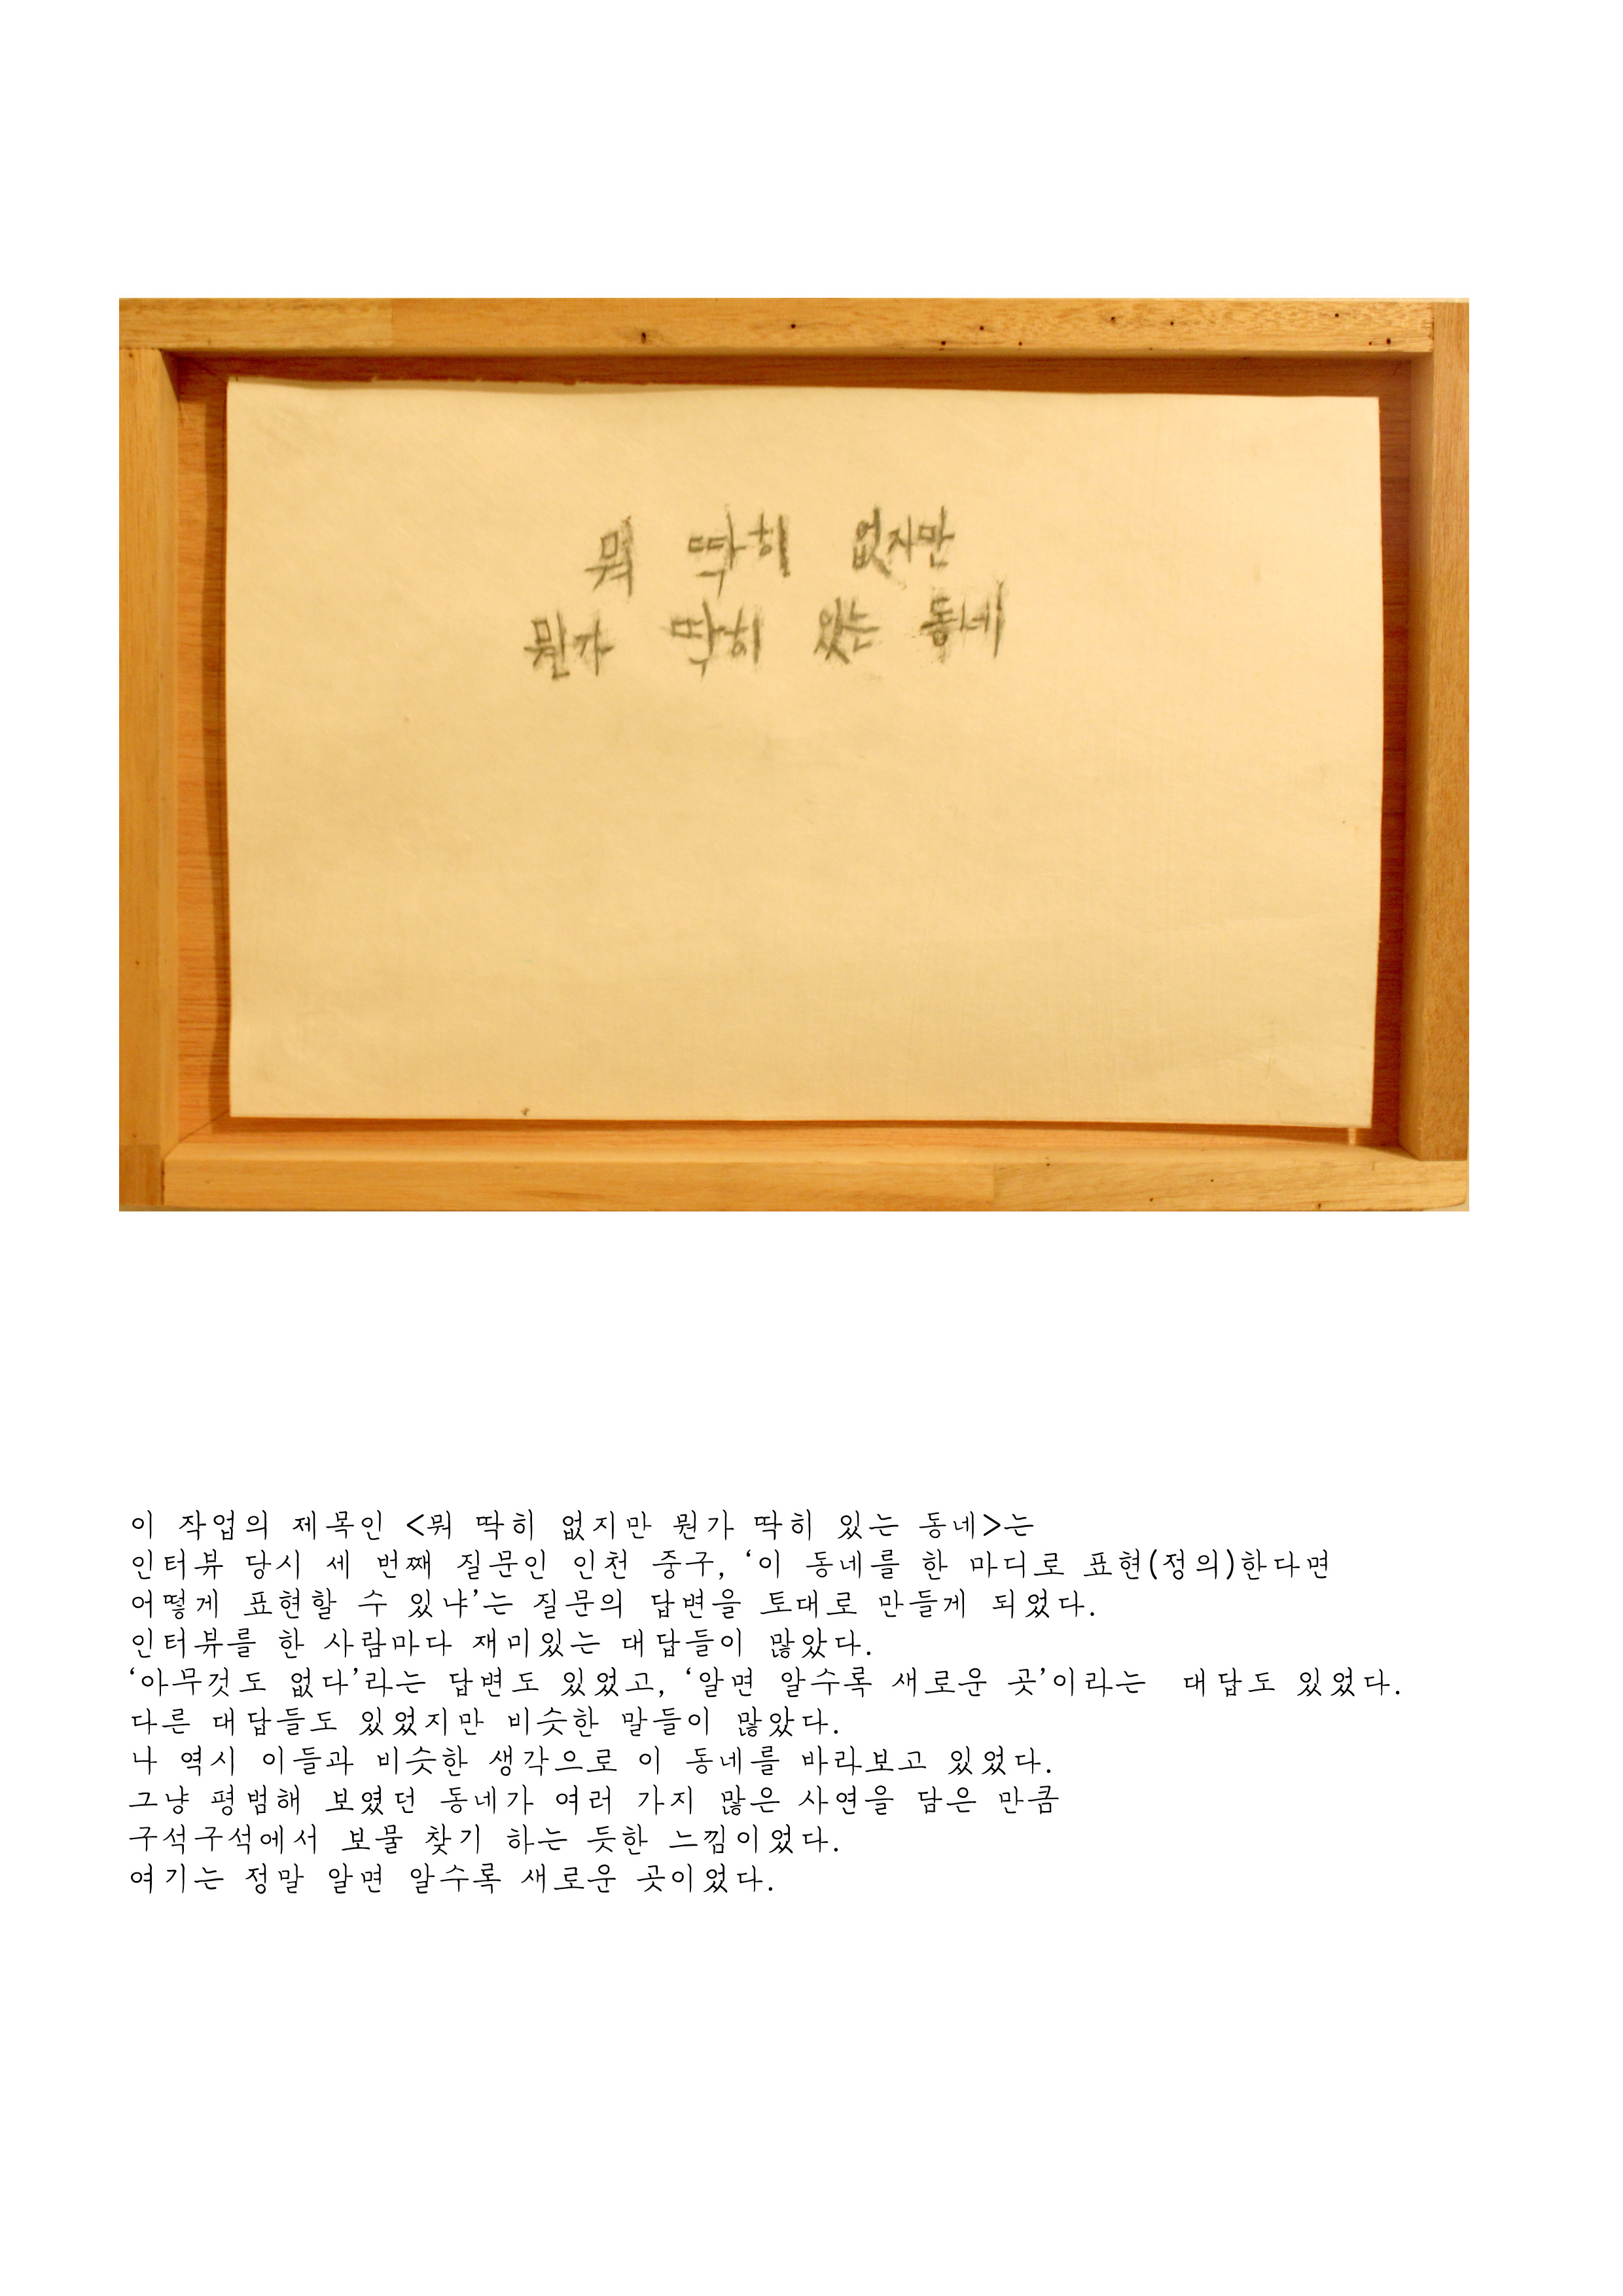 뭐 딱히 없지만
뭔가 딱히 있는 동네
이 작업의 제목인 <뭐 딱히 없지만 뭔가 딱히 있는 동네>는
인터뷰 당시 세 번째 질문인 인천 중구, ‘이 동네를 한 마디로 표현(정의)한다면
어떻게 표현할 수 있냐’는 질문의 답변을 토대로 만들게 되었다.
인터뷰를 한 사람마다 재미있는 대답들이 많았다.
‘아무것도 없다’라는 답변도 있었고, ‘알면 알수록 새로운 곳’이라는 대답도 있었다.
다른 대답들도 있었지만 비슷한 말들이 많았다.
나 역시 이들과 비슷한 생각으로 이 동네를 바라보고 있었다.
그냥 평범해 보였던 동네가 여러 가지 많은 사연을 담은 만큼
구석구석에서 보물 찾기 하는 듯한 느낌이었다.
여기는 정말 알면 알수록 새로운 곳이었다.